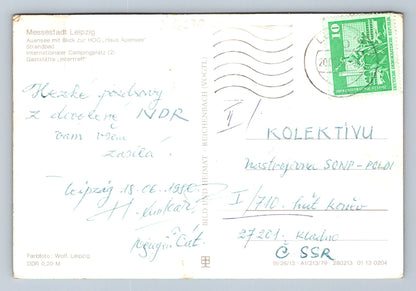 Messestadt Leipzig
Auensee mit Blick zur HOG „Haus Auensee“
Strandbad
Internationaler Campingplatz (2)
Gaststätte „Intertreff“
Hezké pozdravy
z dovolené NDR
vám všem
zasílá
Leipzig 18.06.
Farbfoto: Wolf, Leipzig
DDR 0,20 M
BILD UND HEIMAT REICHENBACH (VOGTL)
10
II/
KOLEKTIVU
nástrojovna SONP-POLDI
I/710 - huť Koněv
27201 Kladno
Č SSR
AV/313/79 280213 01 13 0204